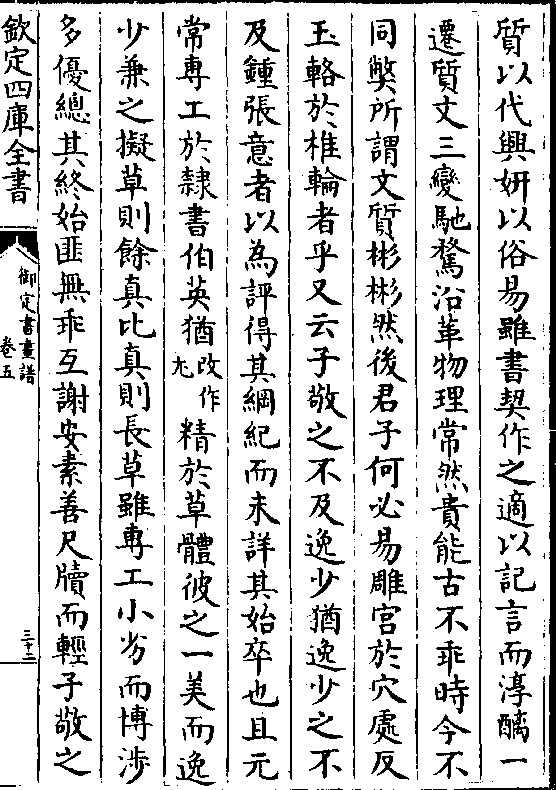 質以代興妍以俗易雖書契作之適以記言而淳醨一
遷質文三變馳騖沿革物理常然貴能古不乖時今不
同弊所謂文質彬彬然後君子何必易雕宮於穴處反
玉輅於椎輪者乎又云子敬之不及逸少猶逸少之不
及鍾張意者以為評得其綱紀而未詳其始卒也且元
常專工於隸書伯英猶改作尤精於草體彼之二美而逸
少兼之擬草則餘真比真則長草雖專工小劣而博涉
多優總其終始匪無乖互謝安素善尺牘而輕子敬之
欽定四庫全書
御定書畫譜
卷五
三十二